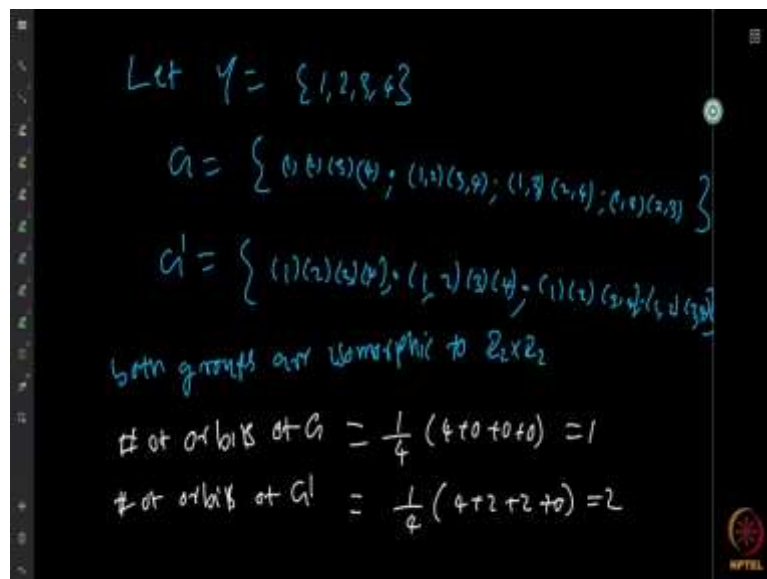 Let Y = {1,2,3,4}
G = { (1)(2)(3)(4) ; (1,2)(3,4) ; (1,3)(2,4) ; (1,4)(2,3) }
G' = { (1)(2)(3)(4) ; (1,2)(3)(4) ; (1)(2)(3,4) ; (1,2)(3,4) }
both groups are isomorphic to Z₂×Z₂
# of orbits of G = 1/4 (4+0+0+0) = 1
# of orbits of G' = 1/4 (4+2+2+0) = 2
NPTEL